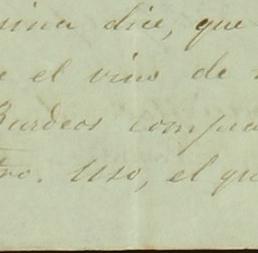 sina dice, que
e el vino de
Burdeos compra
tro. Uso, el qu